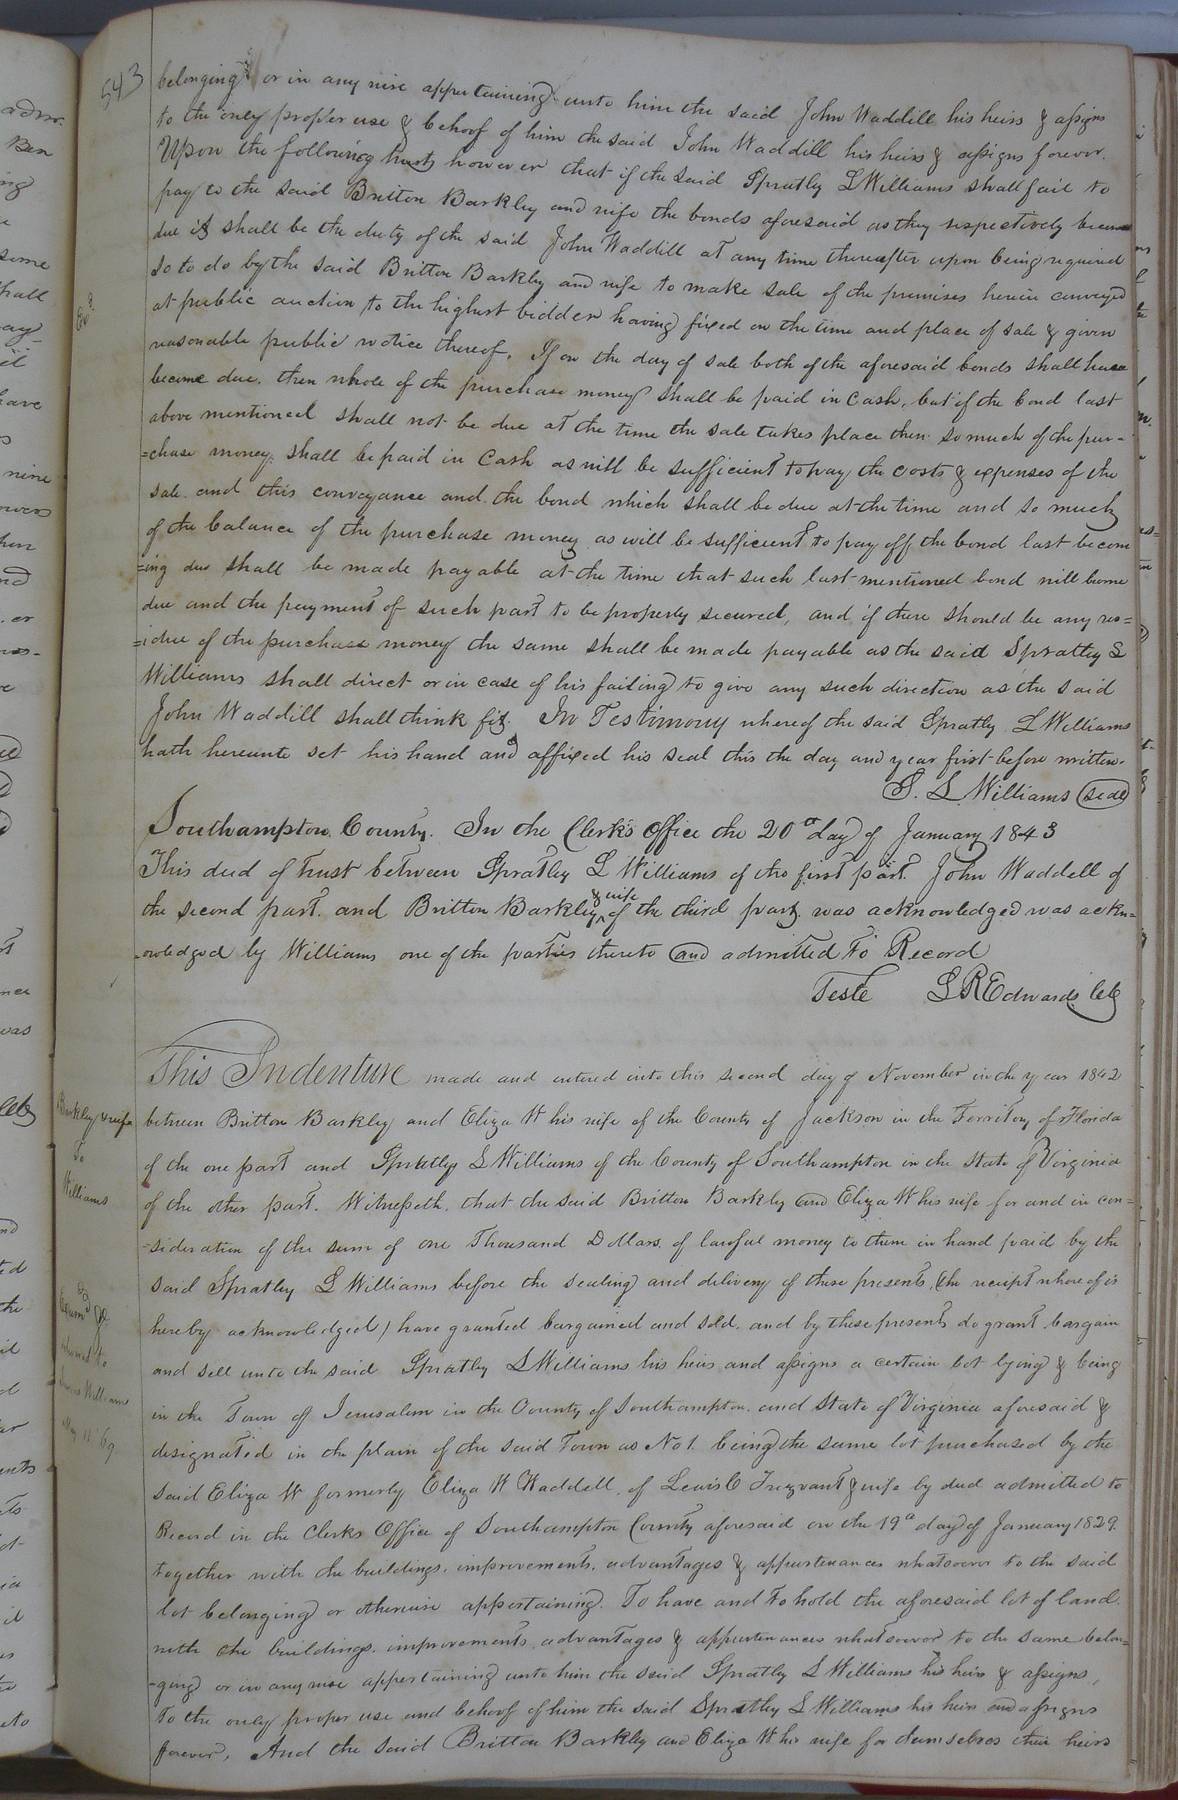 543
belonging or in any wise appertaining unto him the said John Waddill his heirs & assigns
to the only proper use & behoof of him the said John Waddill his heirs & assigns forever.
Upon the following trust however that if the said Spratley L Williams shall fail to
pay to the said Britton Barkley and wife the bonds aforesaid as they respectively become
due it shall be the duty of the said John Waddill at any time thereafter upon being required
so to do by the said Britton Barkley and wife to make sale of the premises herein conveyed
at public auction to the highest bidder having fixed on the time and place of sale & given
reasonable public notice thereof. If on the day of sale both of the aforesaid bonds shall have
become due. then whole of the purchase money shall be paid in Cash, but if the bond last
above mentioned shall not be due at the time the sale takes place then so much of the pur-
=chase money shall be paid in Cash as will be sufficient to pay the costs & expenses of the
sale and this conveyance and the bond which shall be due at the time and so much
of the balance of the purchase money as will be sufficient to pay off the bond last becom
=ing due shall be made payable at the time that such last mentioned bond will become
due and the payment of such part to be properly secured, and if there should be any res=
=idue of the purchase money the same shall be made payable as the said Spratley L
Williams shall direct or in case of his failing to give any such direction as the said
John Waddill shall think fit. In Testimony whereof the said Spratley L Williams
hath hereunto set his hand and affixed his seal this the day and year first before written.
S. L. Williams (seal)
Southampton County. In the Clerk's Office the 20th day of January 1843
This deed of trust between Spratley L Williams of the first part John Waddell of
& wife
the second part. and Britton Barkley of the third part was acknowledged was ackn=
-owledged by Williams one of the parties thereto and admitted to Record
Teste L R Edwards Clk
This Indenture made and entered into this second day of November in the year 1842
Barkley & wife
To
Williams
between Britton Barkley and Eliza W his wife of the County of Jackson in the Territory of Florida
of the one part and Spratley L Williams of the County of Southampton in the State of Virginia
of the other part. Witnesseth, that the said Britton Barkley and Eliza W his wife for and in con=
-sideration of the sum of one Thousand Dollars of lawful money to them in hand paid by the
said Spratley L Williams before the sealing and delivery of these presents (the receipt whereof is
hereby acknowledged) have granted bargained and sold, and by these presents do grant bargain
and sell unto the said Spratley L Williams his heirs and assigns a certain lot lying & being
in the Town of Jerusalem in the County of Southampton and State of Virginia aforesaid &
designated in the plan of the said Town as No 1. being the same lot purchased by the
said Eliza W formerly Eliza W Waddell, of Lewis C Trezvant & wife by deed admitted to
Record in the Clerks Office of Southampton County aforesaid on the 19th day of January 1829.
together with the buildings, improvements, advantages & appurtenances whatsoever to the said
lot belonging or otherwise appertaining. To have and to hold the aforesaid lot of land.
with the buildings, improvements, advantages & appurtenances whatsoever to the same belon=
-ging or in any wise appertaining unto him the said Spratley L Williams his heirs & assigns,
To the only proper use and behoof of him the said Spratley L Williams his heirs and assigns
forever, And the said Britton Barkley and Eliza W his wife for themselves their heirs